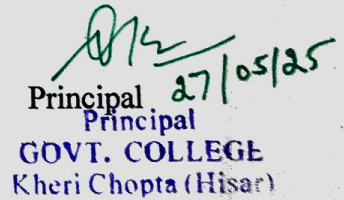 27/05/25
Principal
Principal
GOVT. COLLEGE
Kheri Chopta (Hisar)